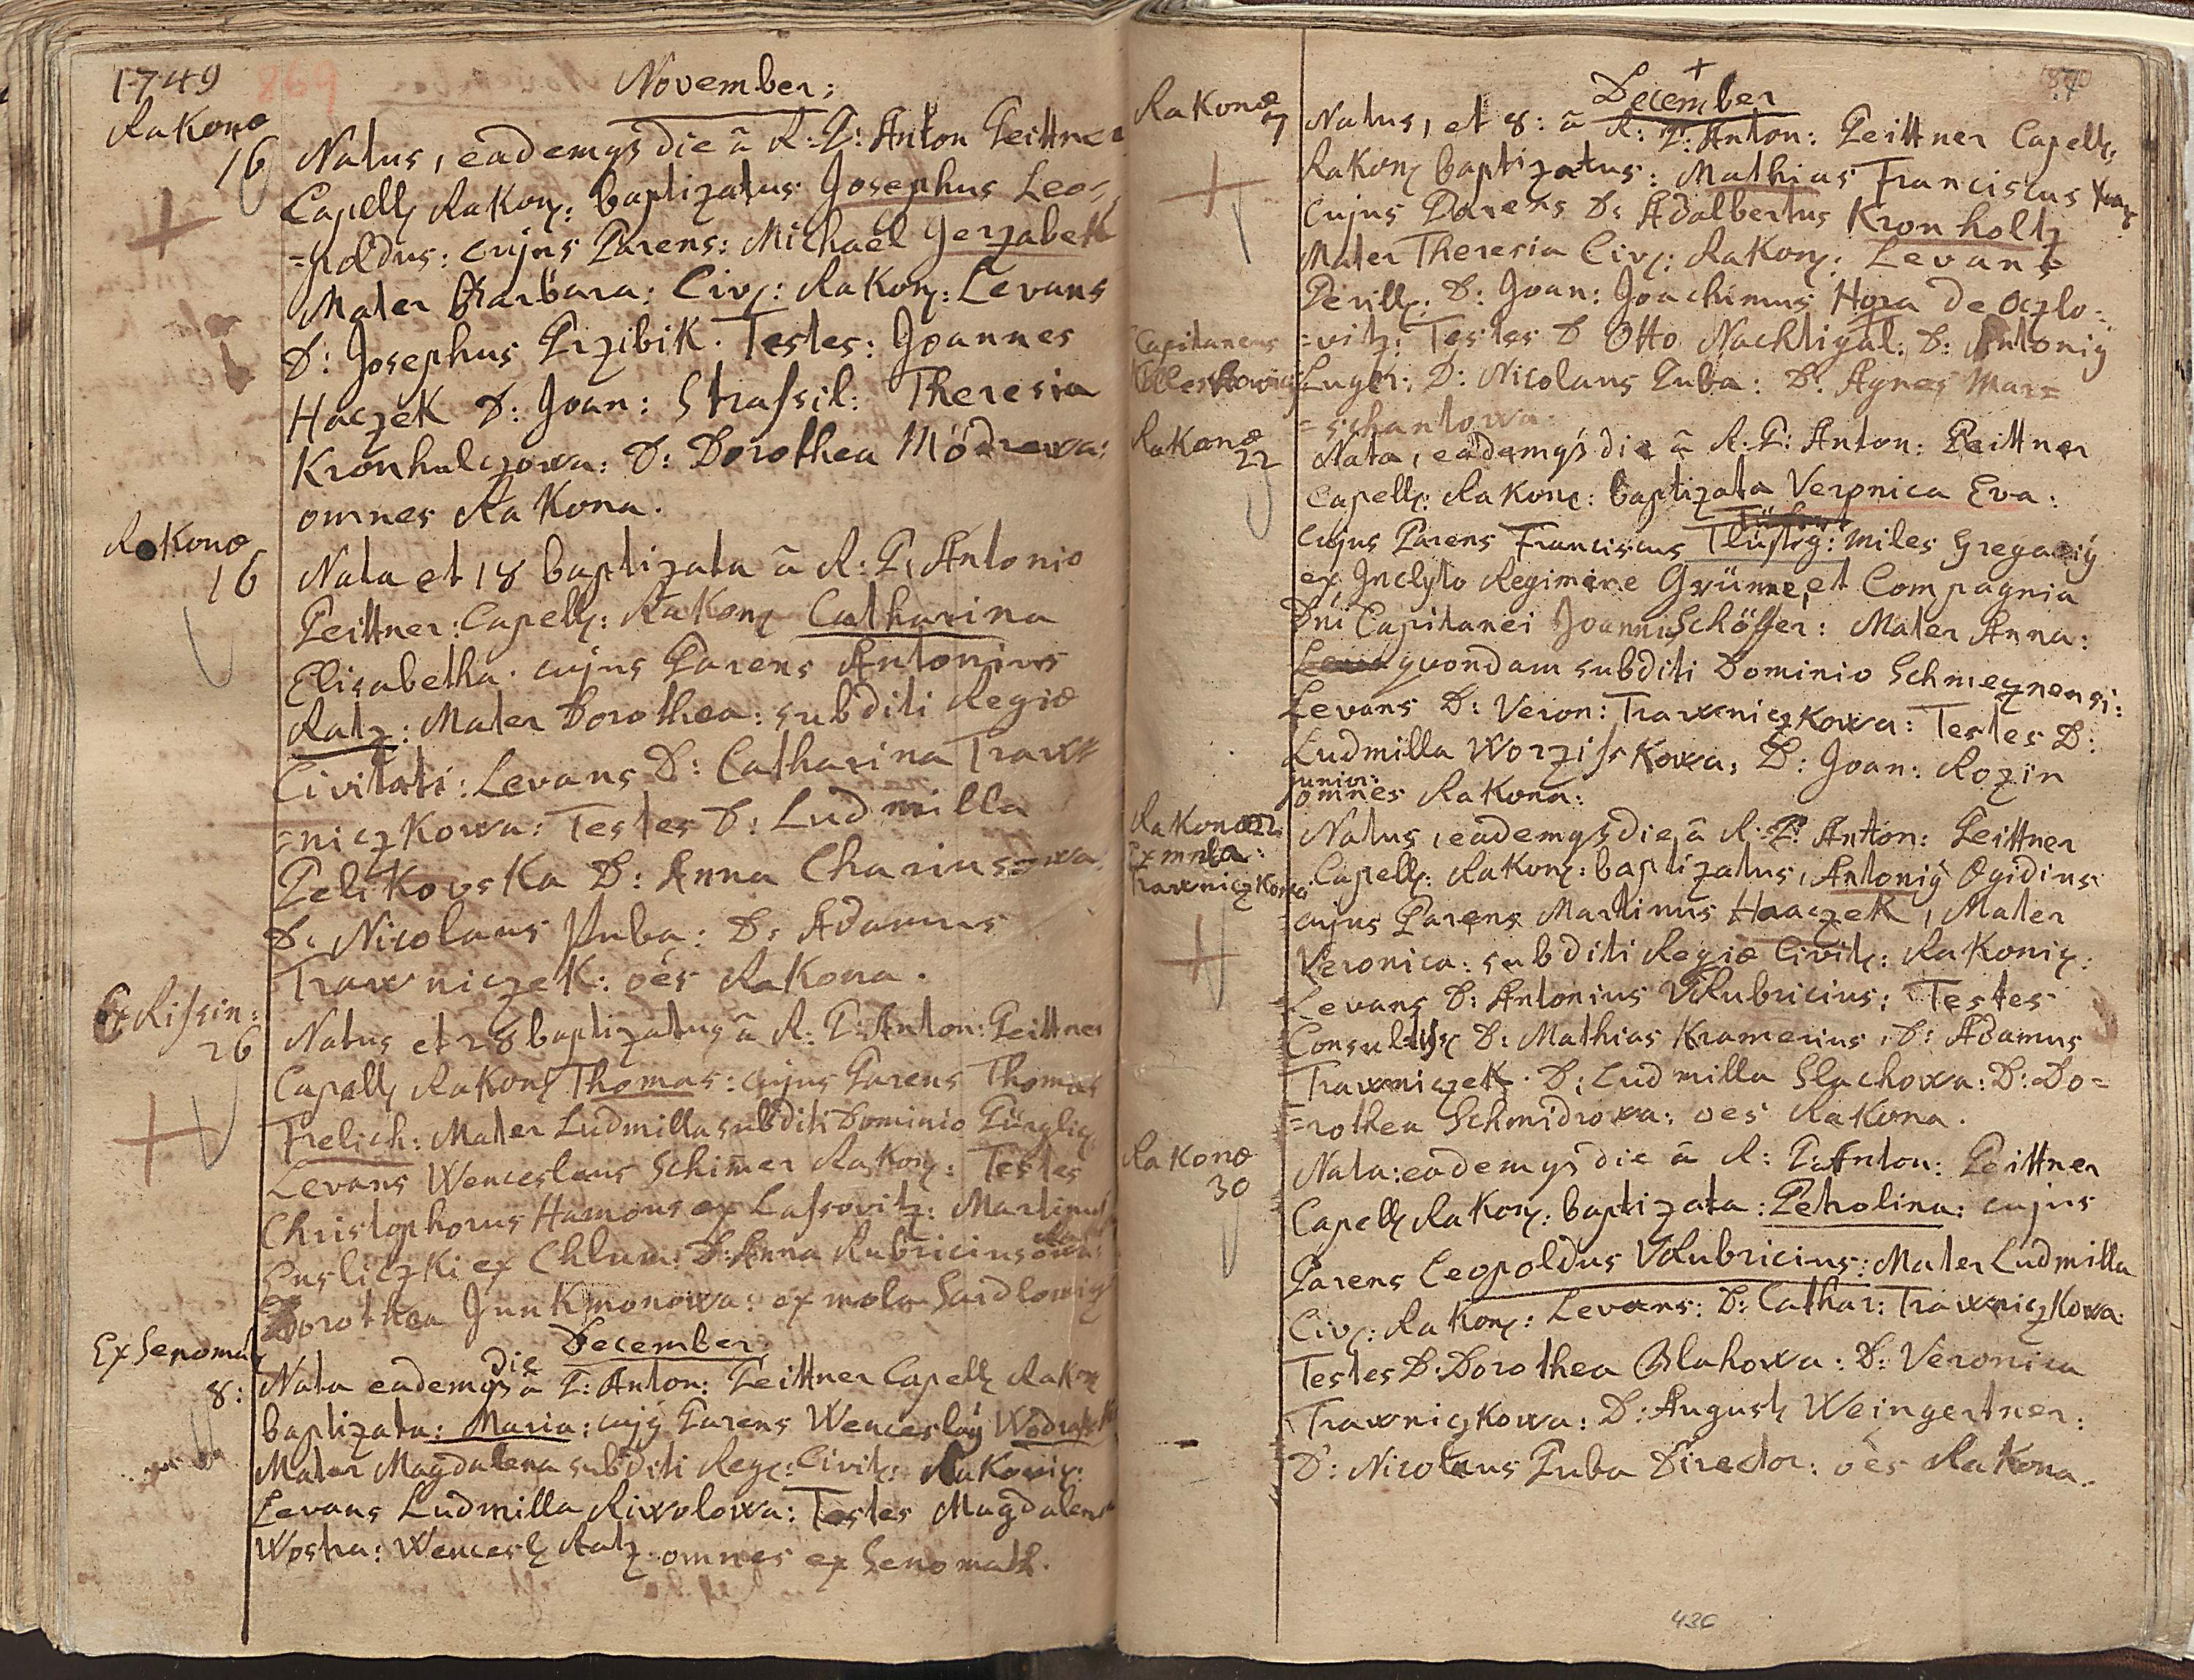 1749
869
November:
Rakonæ
16
Natus, eademqз die â R: P: Anton Peittner
Capell: Rakon: baptizatus Josephus Leo=
=poldus: cujus Parens: Michael Gerzabek
Mater Barbara: Civ: Rakon: Levans
D: Josephus Przibik. Testes: Joannes
Haczek D: Joan: Strassil: Theresia
Kronhulczowa: D: Dorothea Módrewa:
omnes Rakona.
Rakonæ
16
Nata et 18 baptizata â R: P: Antonio
Peittner: Capell: Rakon: Catharina
Elisabetha. cujus Parens Antonius
Ratz: Mater Dorothea: subditi Regiæ
Civitati: Levans D: Catharina Traw=
=niczkowa: Testes D: Ludmilla
Pelikovska D: Anna Charius=owa
D: Nicolaus Puba: D: Adamus
Trawniczek: oes Rakona.
Ex Rissin:
26
Natus et 28 baptizatus â R: P: Anton: Peittner
Capell: Rakon: Thomas: cujus Parens Thomas
Frelich: Mater Ludmilla subditi Dominio Pürglic:
Levans Wenceslaus Schimer Rakon: Testes
Christophorus Hamous ex Lassovitz: Martinus
Husliczki ex Chlum: D: Anna Rubriciusowa:
Dorothea Junkmonowa: ex mola Sardlowig
December:
Ex Senomat
8:
Nata eademqз die â P: Anton: Peittner Capell: Rakon
baptizata: Maria: cujg Parens Wenceslaus
Mater Magdalena subditi Reg: Civit: Rakonic:
Levans Ludmilla Riwolowa: Testes Magdalena
Wostra: Wencesl: Ratz omnes ex Senomath.
870
December
Rakonæ
7
Natus, et 8: â R: P: Anton: Peittner Capell:
Rakon: baptizatus: Mathias Franciscus Xav:
cujus Parens D: Adalbertus Kronholtz
Mater Theresia Civ: Rakon: Levans
Perill: D: Joan: Joachimus Hora de Oczlo=
=vitz: Testes D Otto Nachtigal: D: Antonig
Luger: D: Nicolaus Puba: D: Agnes Mar=
=schantowa.
Capitaneus
Rakonæ
22
Nata, eademqз die â R: P: Anton: Peittner
Capell: Rakon: baptizata Veronica Eva:
cujus Parens Franciscus Tlustÿ: miles Gregariÿ
ex Inclyto Regimine Grünne, et Compagnia
Dni Capitanei Joannis Schösser: Mater Anna:
quondam subditi Dominio Schmecznensi:
Levans D: Veron: Trawniczkowa: Testes D:
Ludmilla Worzisskowa, D: Joan: Rozin
junior:
omnes Rakona:
Rakonæ 22
Ex mola:
Trawniczkowa
Natus, eademqз die, â R: P: Anton: Peittner
Capell: Rakon: baptizatus, Antonig Ægidius
cujus Parens Martinus Haaczek, Mater
Veronica: subditi Regiæ Civit: Rakonic:
Levans D: Antonius VRubricius: Testes
Consultiss: D: Mathias Kramerius, D: Adamus
Trawniczek. D: Ludmilla Slachowa: D: Do=
=rothea Schmidrowa: oes Rakona.
Rakonæ
30
Nata: eademqз die â R: P: Anton: Peittner
Capell: Rakon: baptizata: Petrolina: cujus
Parens Leopoldus VRubricius: Mater Ludmilla
Civ: Rakon: Levans: D: Cathar: Trawniczkowa:
Testes D: Dorothea Blahowa: D: Veronica
Trawniczkowa: D: August: Weingertner:
D: Nicolaus Puba Director: oes Rakona.
436